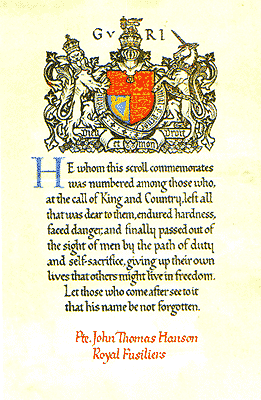 GVRI
Dieu et mon Droit
HE whom this scroll commemorates
was numbered among those who,
at the call of King and Country, left all
that was dear to them, endured hardness,
faced danger, and finally passed out of
the sight of men by the path of duty
and self-sacrifice, giving up their own
lives that others might live in freedom.
Let those who come after see to it
that his name be not forgotten.
Pte. John Thomas Hanson
Royal Fusiliers